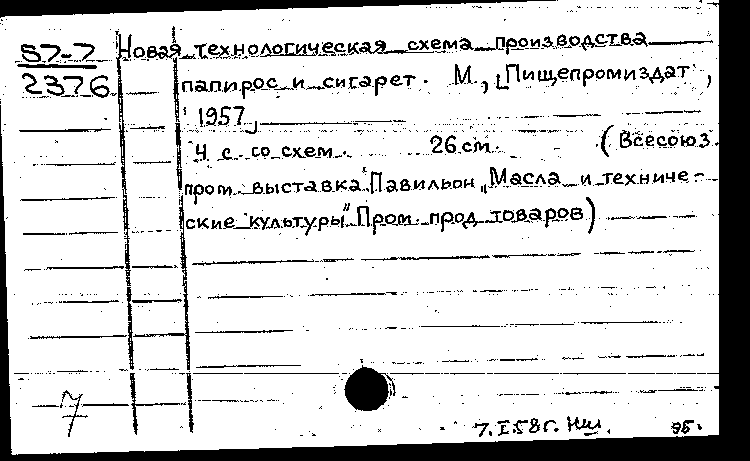 57-7 Новая технологическая схема производства
2376 папирос и сигарет. М., [Пищепромиздат,
1957]
4 с. со схем. 26 см. (Всесоюз.
пром. выставка. Павильон „Масла и техниче-
ские культуры" Пром. прод. товаров)
7
7.I.58г. 95.